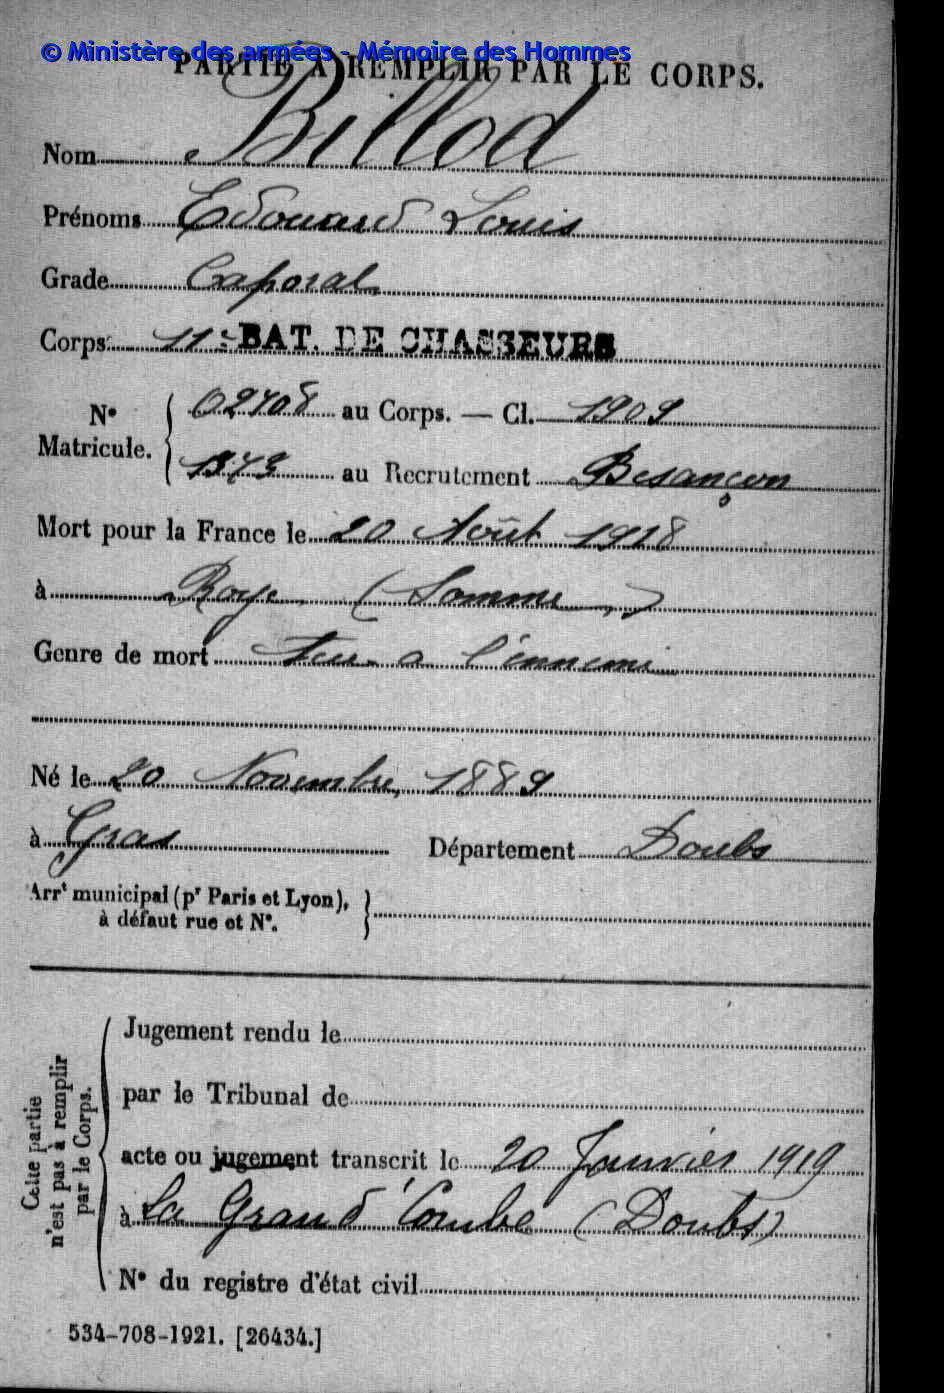 © Ministère des armées - Mémoire des Hommes
PARTIE A REMPLIR PAR LE CORPS.
Nom Billod
Prénoms Edouard Louis
Grade Caporal
Corps 11e BAT. DE CHASSEURS
N° Matricule. { 02708 au Corps. — Cl. 1909
1373 au Recrutement Besançon
Mort pour la France le 20 Août 1918
à Roye (Somme)
Genre de mort Tué à l'ennemi
Né le 20 Novembre 1889
à Gras Département Doubs
Arrt municipal (pr Paris et Lyon), }
à défaut rue et N°.
Cette partie n'est pas à remplir par le Corps.
Jugement rendu le
par le Tribunal de
acte ou jugement transcrit le 20 Janvier 1919
à La Grand'Combe (Doubs)
N° du registre d'état civil
534-708-1921. [26434.]